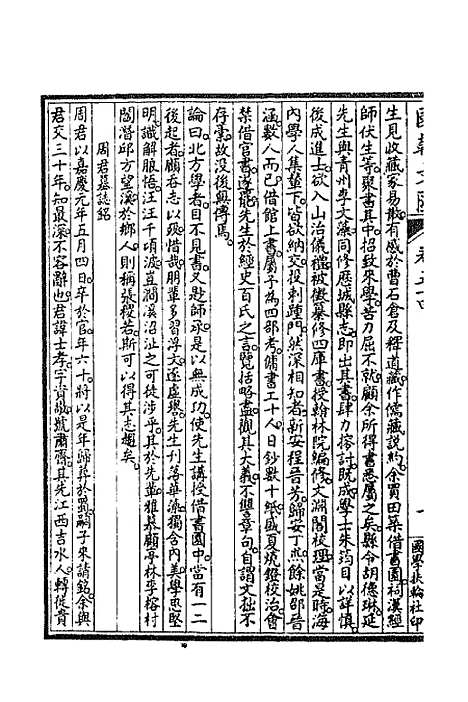 國朝文匯 卷五十四
國學扶輪社印
生見收藏家易散有感於曹石倉及釋道藏作儒藏說約余買田築借書園祠漢經
師伏生等聚書其中招致來學苦力屈不就顧余所得書悉屬之矣縣令胡德琳延
先生與青州李文藻同修歷城縣志即出其書肆力搜討旣成學士朱筠目以詳慎
後成進士欲入山治儀禮被徵纂修四庫書授翰林院編修文淵閣校理當是時海
內學人集輦下皆欲納交投刺踵門然深相知者新安程晉芳歸安丁杰餘姚邵晉
涵數人而已借館上書屬予為四部考傭書工十人日鈔數十紙盛夏燒鐙校治會
禁借官書遂罷先生於經史百氏之言覽括略盡觀其大義不讐章句自謂文拙不
存稾故沒後無傳焉
論曰北方學者目不見書又尟師承是以無成功使先生講授借書園中當有一二
後起者顧吞志以歿惜哉朋輩多習浮文逐虛譽先生刊落華藻獨含內美學思堅
明識解服悟汪汪千頃波豈澗溪沼沚之可徒涉乎其於先輩雅慕顧亭林李榕村
閻潛邱方望溪於鄉人則稱張稷若斯可以得其志趣矣
周君墓誌銘
周君以嘉慶元年五月四日卒於官年六十將以是年歸葬於蜀嗣子來請銘余與
君交三十年知最深不容辭也君諱士孝字資敬號肅齋其先江西吉水人轉徙貴